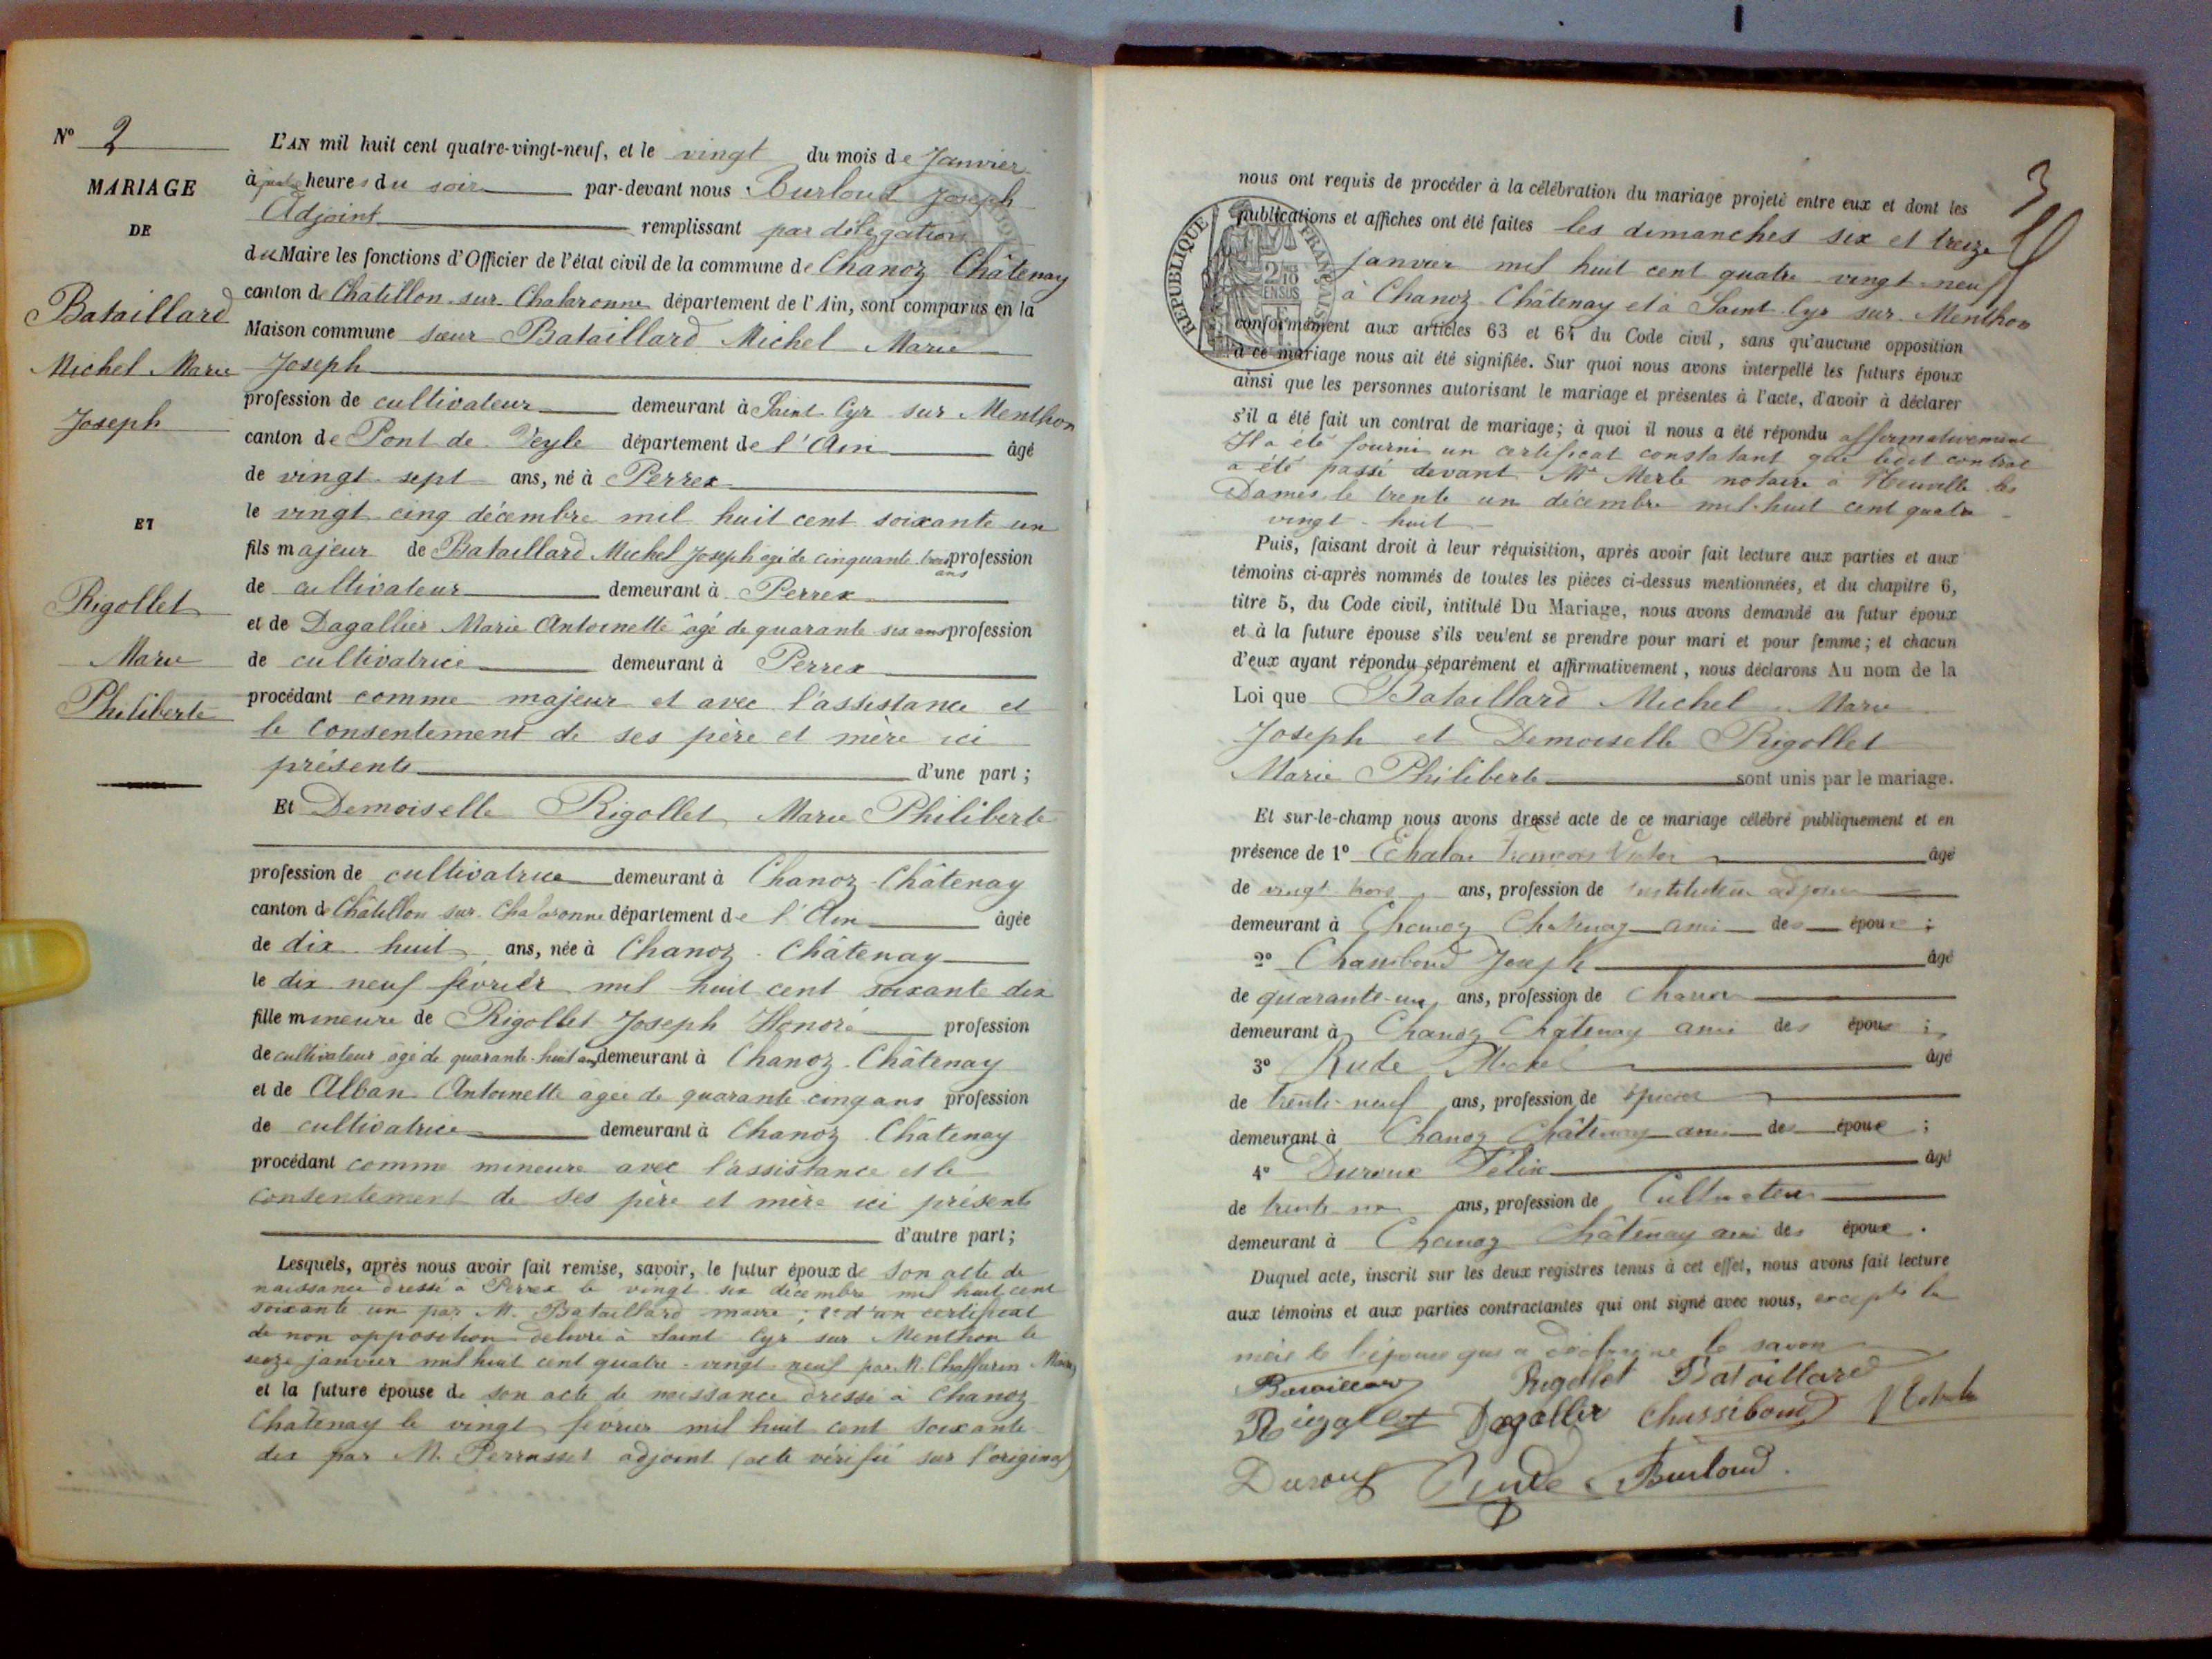 N° 2
MARIAGE
DE
Bataillard
Michel Marie
Joseph
ET
Rigollet
Marie
Philiberte
L'AN mil huit cent quatre-vingt-neuf, et le vingt du mois de Janvier
à heures du soir par-devant nous Burloud Joseph
Adjoint remplissant par délégation
du Maire les fonctions d'Officier de l'état civil de la commune de Chanoz Châtenay
canton de Châtillon sur Chalaronne département de l'Ain, sont comparus en la
Maison commune sieur Bataillard Michel Marie
Joseph
profession de cultivateur demeurant à Saint Cyr sur Menthon
canton de Pont de Veyle département de l'Ain âgé
de vingt sept ans, né à Perrex
le vingt cinq décembre mil huit cent soixante un
fils majeur de Bataillard Michel Joseph âgé de cinquante trois ans profession
de cultivateur demeurant à Perrex
et de Dagallier Marie Antoinette âgé de quarante six ans profession
de cultivatrice demeurant à Perrex
procédant comme majeur et avec l'assistance et
le consentement de ses père et mère ici
présents d'une part ;
Et Demoiselle Rigollet Marie Philiberte
profession de cultivatrice demeurant à Chanoz-Châtenay
canton de Châtillon sur Chalaronne département de l'Ain âgée
de dix huit ans, née à Chanoz-Châtenay
le dix neuf février mil huit cent soixante dix
fille mineure de Rigollet Joseph Honoré profession
de cultivateur âgé de quarante-huit ans demeurant à Chanoz-Châtenay
et de Alban Antoinette âgée de quarante cinq ans profession
de cultivatrice demeurant à Chanoz-Châtenay
procédant comme mineure avec l'assistance et le
consentement de ses père et mère ici présents
d'autre part ;
Lesquels, après nous avoir fait remise, savoir, le futur époux de son acte de
naissance dressé à Perrex le vingt six décembre mil huit cent
soixante un par M. Bataillard maire ; 2° d'un certificat
de non opposition délivré à Saint Cyr sur Menthon le
seize janvier mil huit cent quatre-vingt neuf par M. Chaffurin Maire
et la future épouse de son acte de naissance dressé à Chanoz
Châtenay le vingt février mil huit cent soixante
dix par M. Perrasset adjoint (acte vérifié sur l'original)
3
nous ont requis de procéder à la célébration du mariage projeté entre eux et dont les
publications et affiches ont été faites les dimanches six et treize
janvier mil huit cent quatre-vingt-neuf
à Chanoz-Châtenay et à Saint-Cyr sur Menthon
REPUBLIQUE FRANÇAISE
conformément aux articles 63 et 64 du Code civil, sans qu'aucune opposition
à ce mariage nous ait été signifiée. Sur quoi nous avons interpellé les futurs époux
ainsi que les personnes autorisant le mariage et présentes à l'acte, d'avoir à déclarer
s'il a été fait un contrat de mariage; à quoi il nous a été répondu affirmativement
Il a été fourni un certificat constatant que ledit contrat
a été passé devant Me Merle notaire à Neuville les
Dames, le trente un décembre mil-huit cent quatre
vingt-huit
Puis, faisant droit à leur réquisition, après avoir fait lecture aux parties et aux
témoins ci-après nommés de toutes les pièces ci-dessus mentionnées, et du chapitre 6,
titre 5, du Code civil, intitulé Du Mariage, nous avons demandé au futur époux
et à la future épouse s'ils veulent se prendre pour mari et pour femme; et chacun
d'eux ayant répondu séparément et affirmativement, nous déclarons Au nom de la
Loi que Bataillard Michel Marie
Joseph et Demoiselle Rigollet
Marie Philiberte sont unis par le mariage.
Et sur-le-champ nous avons dressé acte de ce mariage célébré publiquement et en
présence de 1° François Victor âgé
de vingt trois ans, profession de instituteur adjoint
demeurant à Chanoz Châtenay ami des époux ;
2° Joseph âgé
de quarante-un ans, profession de
demeurant à Chanoz Châtenay ami des époux ;
3° Rude Michel âgé
de trente-neuf ans, profession de épicier
demeurant à Chanoz Châtenay ami des époux ;
4° Duroux Félix âgé
de trente ans, profession de Cultivateur
demeurant à Chanoz Châtenay ami des époux.
Duquel acte, inscrit sur les deux registres tenus à cet effet, nous avons fait lecture
aux témoins et aux parties contractantes qui ont signé avec nous, excepté la
mère de l'épouse qui a déclaré ne le savoir
Bataillard Rigollet Bataillard
Rigollet Dagallier
Duroux Rude Burloud